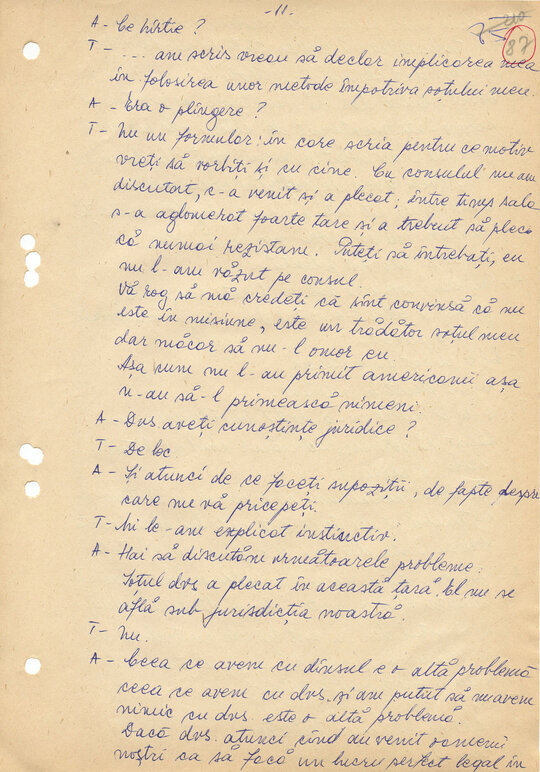 - 11 -
87
A - Ce hîrtie ?
T - ... am scris vreau să declar implicarea mea
în folosirea unor metode împotriva soțului meu.
A - Era o plîngere ?
T - Nu un formular: în care scria pentru ce motiv
vreți să vorbiți și cu cine. Cu consulul nu am
discutat, c-a venit și a plecat, între timp sala
s-a aglomerat foarte tare și a trebuit să plec
că numai rezistam. Puteți să întrebați, eu
nu l-am văzut pe consul.
Vă rog să mă credeți că sînt convinsă că nu
este în misiune, este un trădător soțul meu
dar măcar să nu-l omor eu.
Așa cum nu l-au primit americanii așa
n-au să-l primească nimeni.
A - Dvs aveți cunoștințe juridice ?
T - De loc
A - Și atunci de ce faceți supoziții, de fapte despre
care nu vă pricepeți.
T - Mi le-am explicat instinctiv.
A - Hai să discutăm următoarele probleme.
Soțul dvs a plecat în această țară. El nu se
află sub jurisdicția noastră.
T - Nu.
A - Ceea ce avem cu dînsul e o altă problemă
ceea ce avem cu dvs. și am putut să nu avem
nimic cu dvs. este o altă problemă.
Dacă dvs. atunci cînd au venit oamenii
noștri ca să facă un lucru perfect legal în